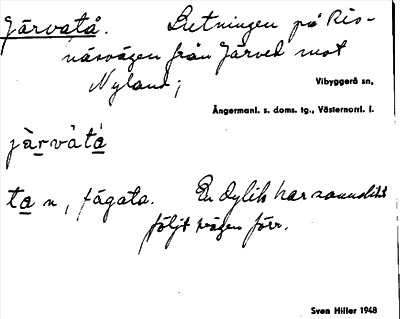 Järvatå. Sletningen på Ris-
näsvägen från Järved mot
Nyland;
Vibyggerå sn,
Ångermanl. s. doms. tg., Västernorrl. l.
jàrvàtá
ta n, fägata. En dylik har sannolikt
följt vägen förr.
Sven Hiller 1948